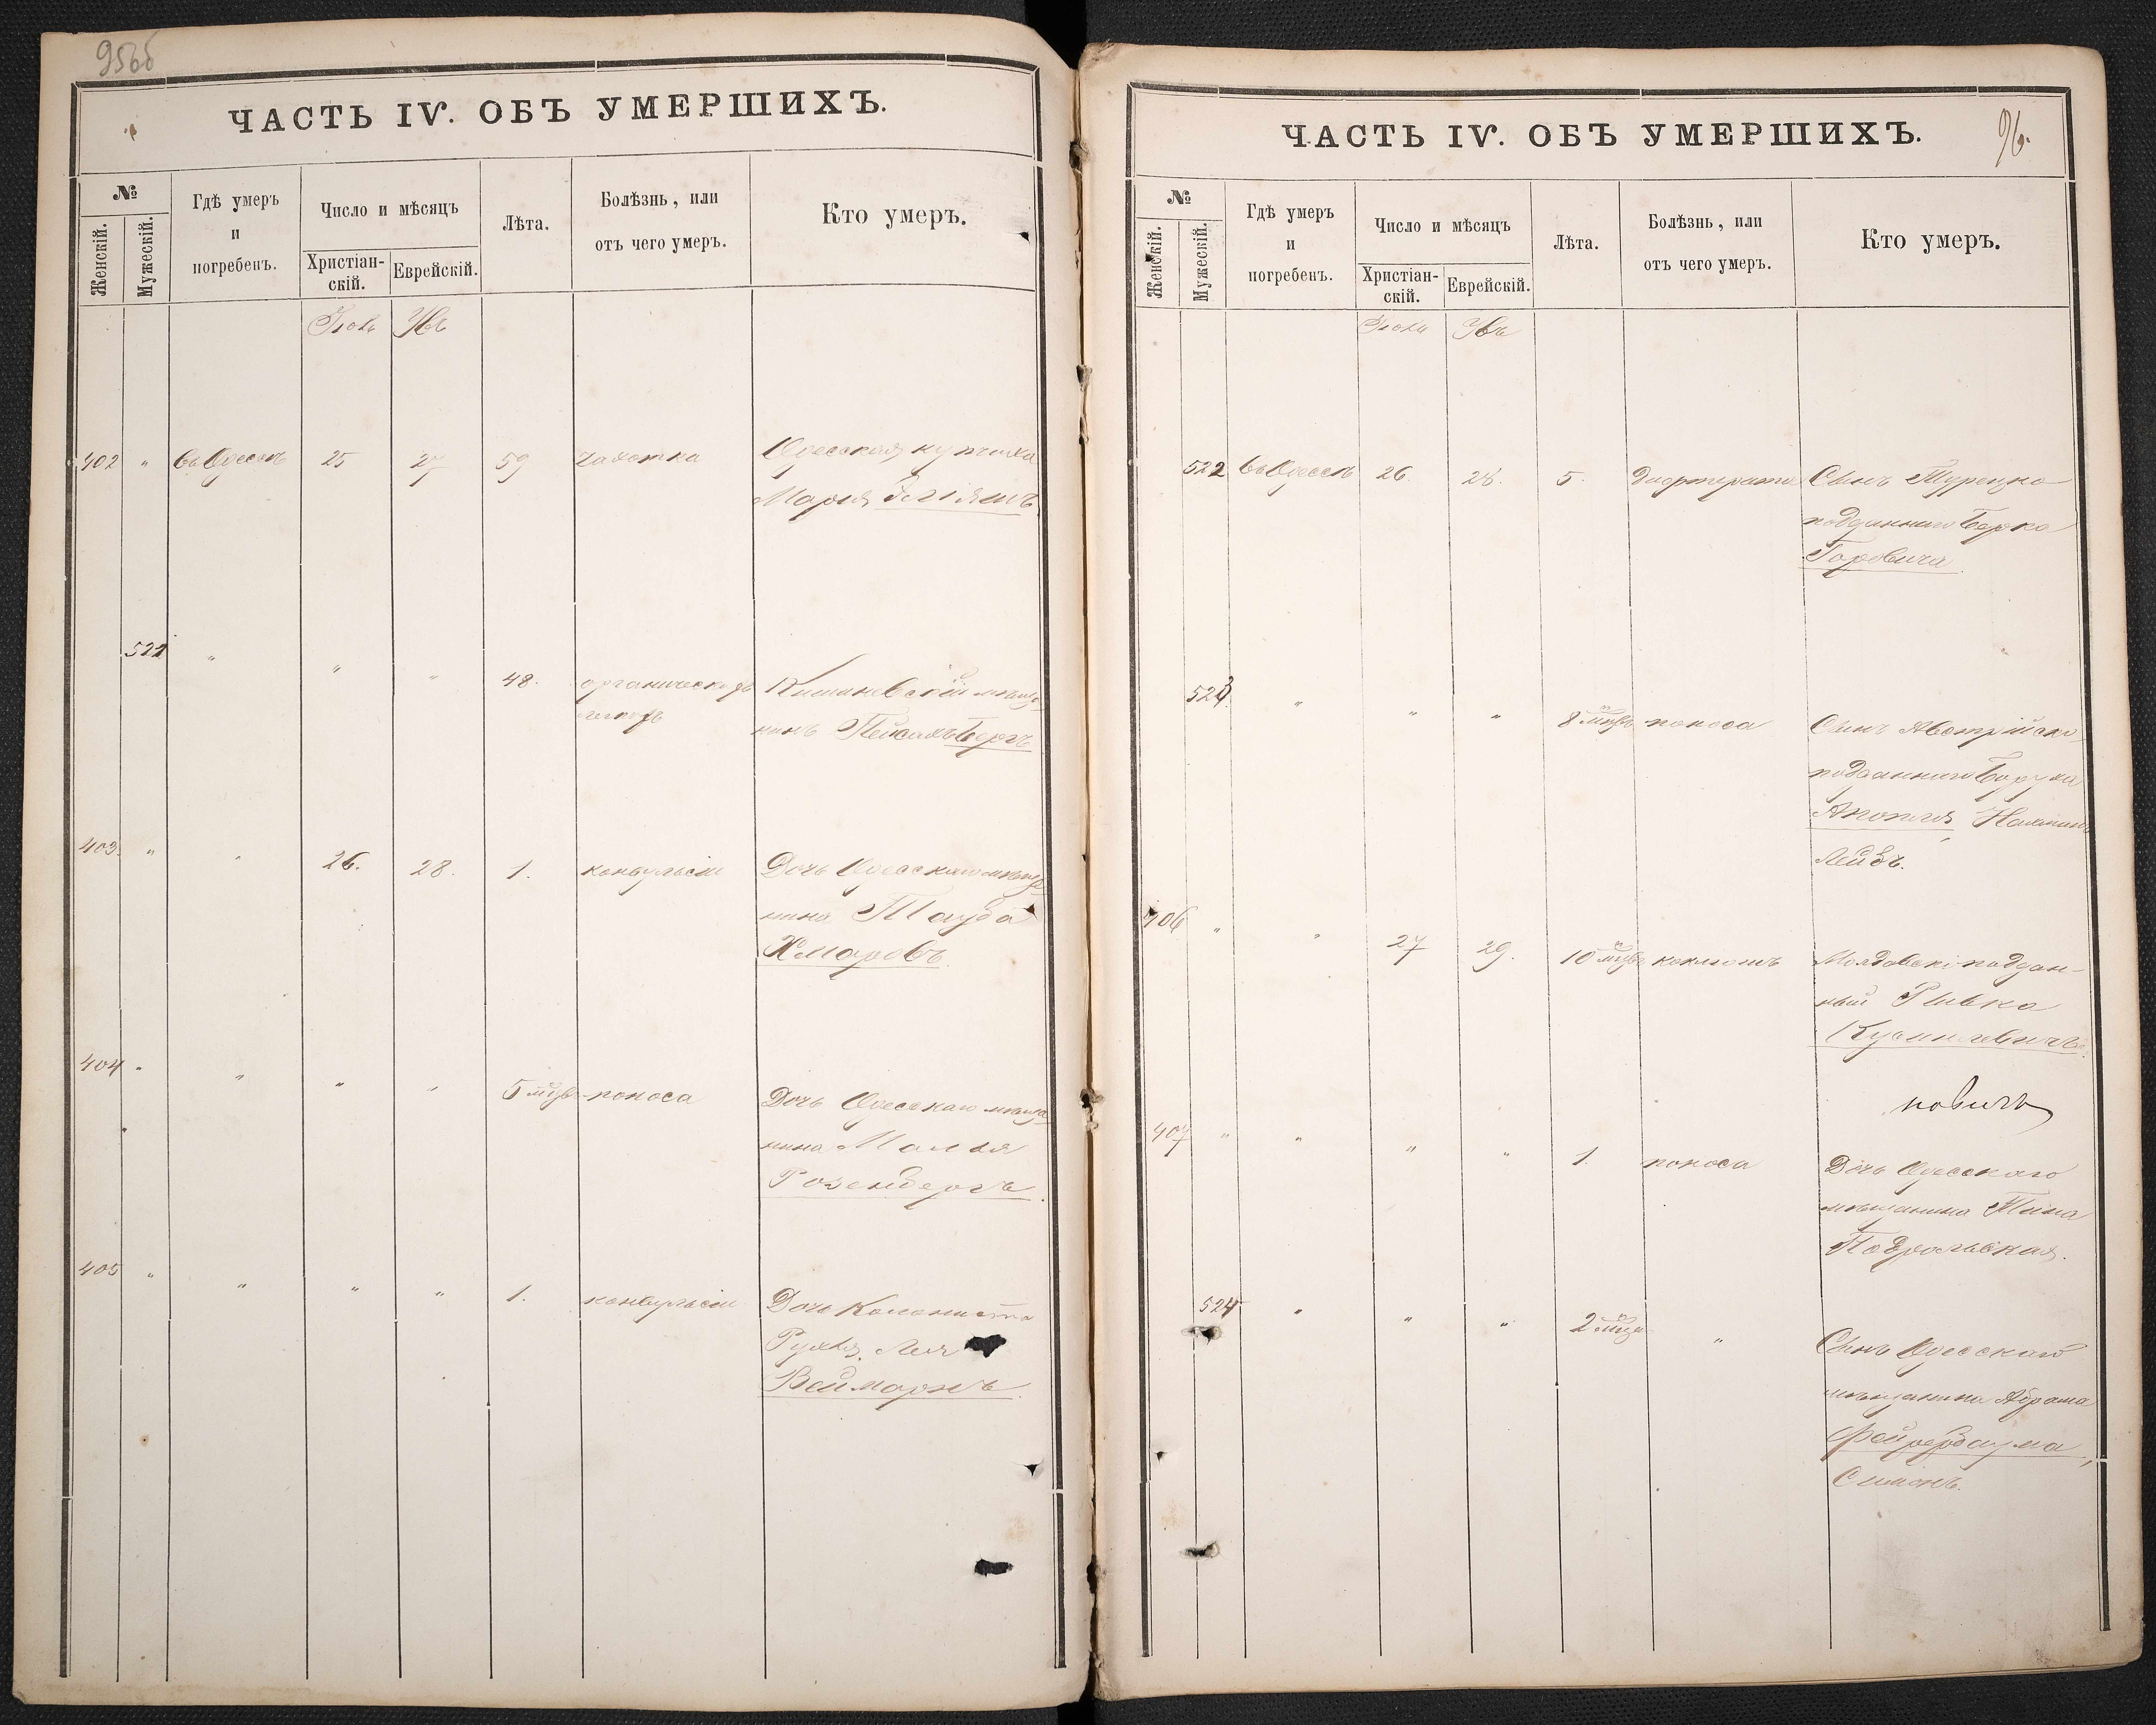 956б
ЧАСТЬ IV. ОБЪ УМЕРШИХЪ.
№
Женскій.
Мужескій.
Гдѣ умеръ
и
погребенъ.
Число и мѣсяцъ
Христіан-
скій.
Еврейскій.
Лѣта.
Болѣзнь, или
отъ чего умеръ.
Кто умеръ.
402 " въ Одессѣ 25 27 59 чахотка Одесская купчиха
Марія
" " " 48. Кишиневскій мѣща-
нинъ Пейсахъ Бергъ
403. " " 26. 28. 1. конвульсіи Дочь Одесскаго мѣща-
нина Тауба
Хмаровъ
404 " " " " 5 мѣц. поноса Дочь Одесскаго мѣща-
нина Малья
Розенбергъ.
405 " " " " 1. конвульсіи Дочь Колониста
Рухля Лея
Веймарнъ.
ЧАСТЬ IV. ОБЪ УМЕРШИХЪ.
96.
№
Женскій.
Мужескій.
Гдѣ умеръ
и
погребенъ.
Число и мѣсяцъ
Христіан-
скій.
Еврейскій.
Лѣта.
Болѣзнь, или
отъ чего умеръ.
Кто умеръ.
522 въ Одессѣ 26. 28. 5. Сынъ Турецко
подданнаго Берка
Горовича.
523. " " " 8 мѣц. поноса Сынъ Австрійско
подданнаго Баруха
Лейбъ.
406 " " 27 29. 10 мѣц. коклюшъ Молдавскі поддан-
ный Ривка
407 " " " " 1. поноса Дочь Одесскаго
мѣщанина
Подрольская.
524 " " " 2 мѣц. " Сынъ Одесскаго
мѣщанина Абрама
Симонъ.